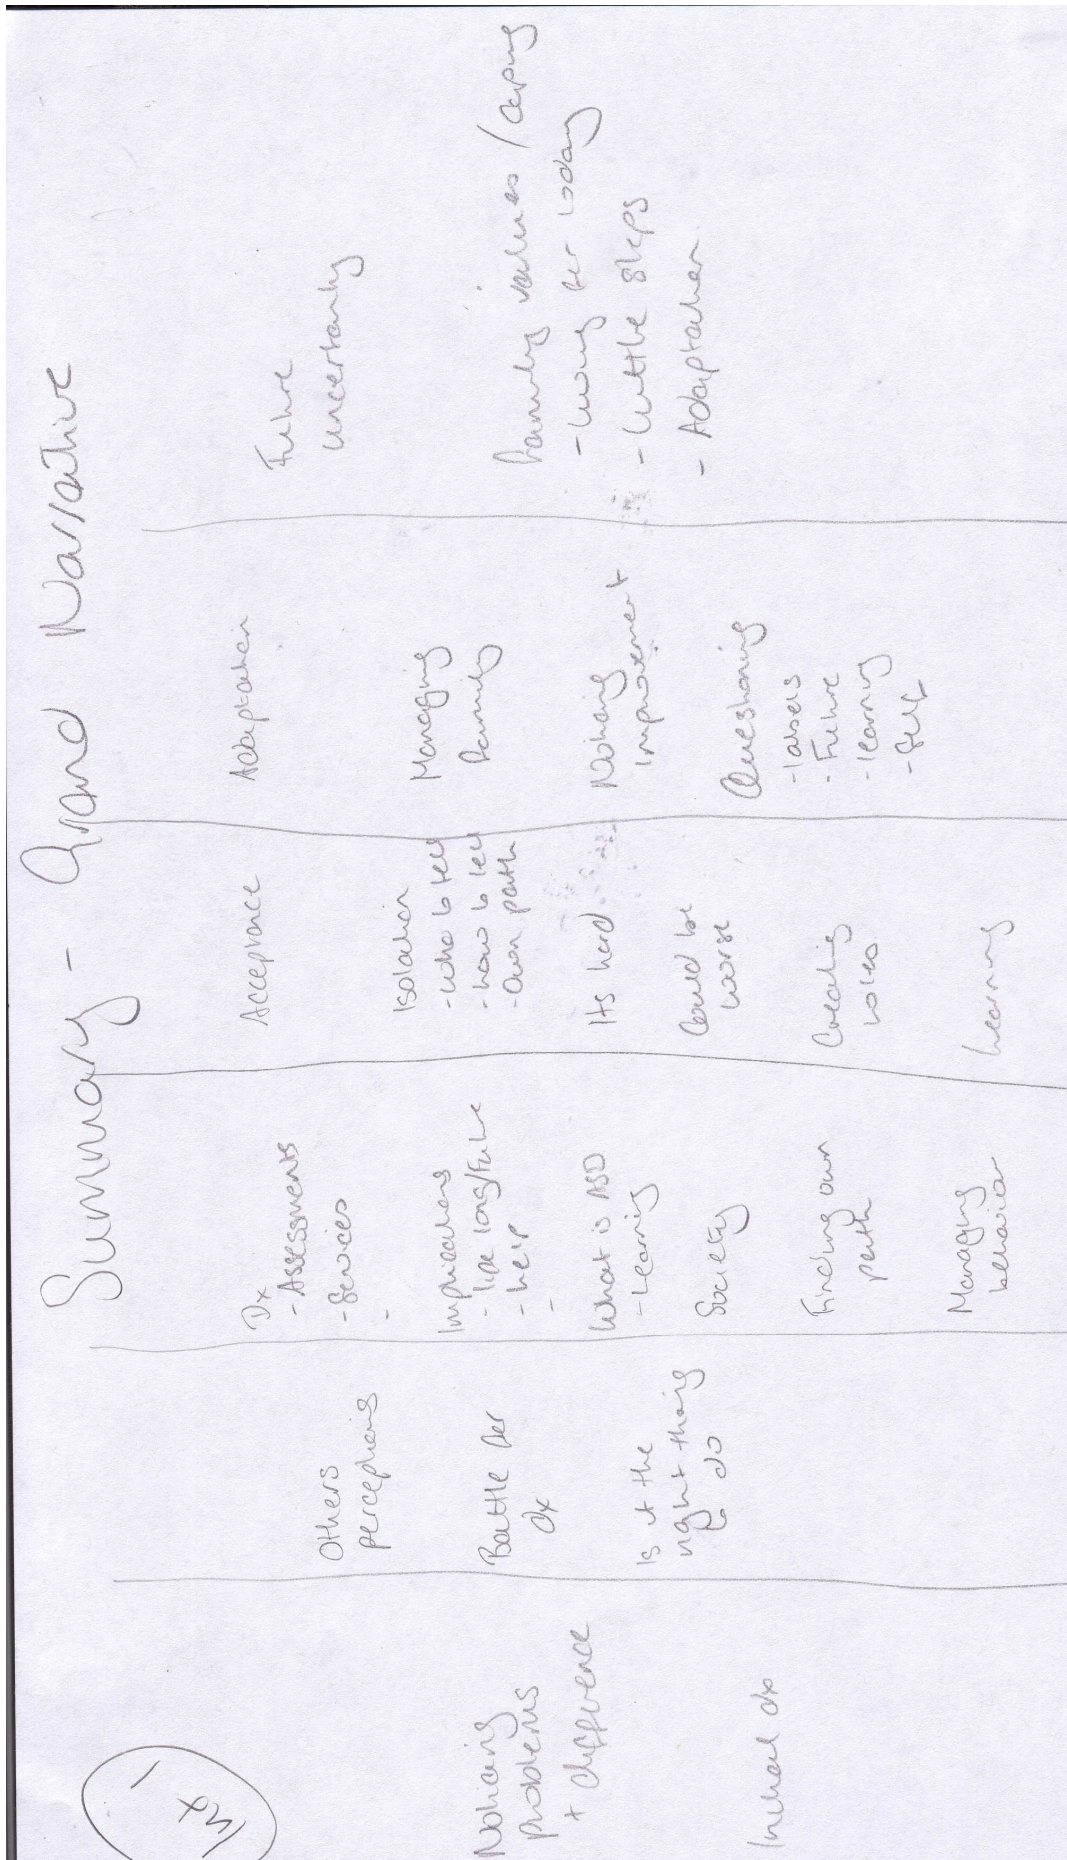 Summary - Grand Narrative
Int 1
Noticing
problems
+ difference
Initial dx
Others
perceptions
Battle for
Dx
Is it the
right thing
to do
Dx
- Assessments
- Services
-
Implications
- life long/future
- help
-
What is ASD
- Learning
Society
Finding own
path
Managing
behavior
Acceptance
Isolation
- who to tell
- how to tell
- own path
Its hard
Could be
worse
Creating
roles
Learning
Adaptation
Managing
family
Noticing
improvement
Questioning
- labels
- Future
- learning
- Self
Future
uncertainty
Family values / coping
- Living for today
- Little steps
- Adaptation